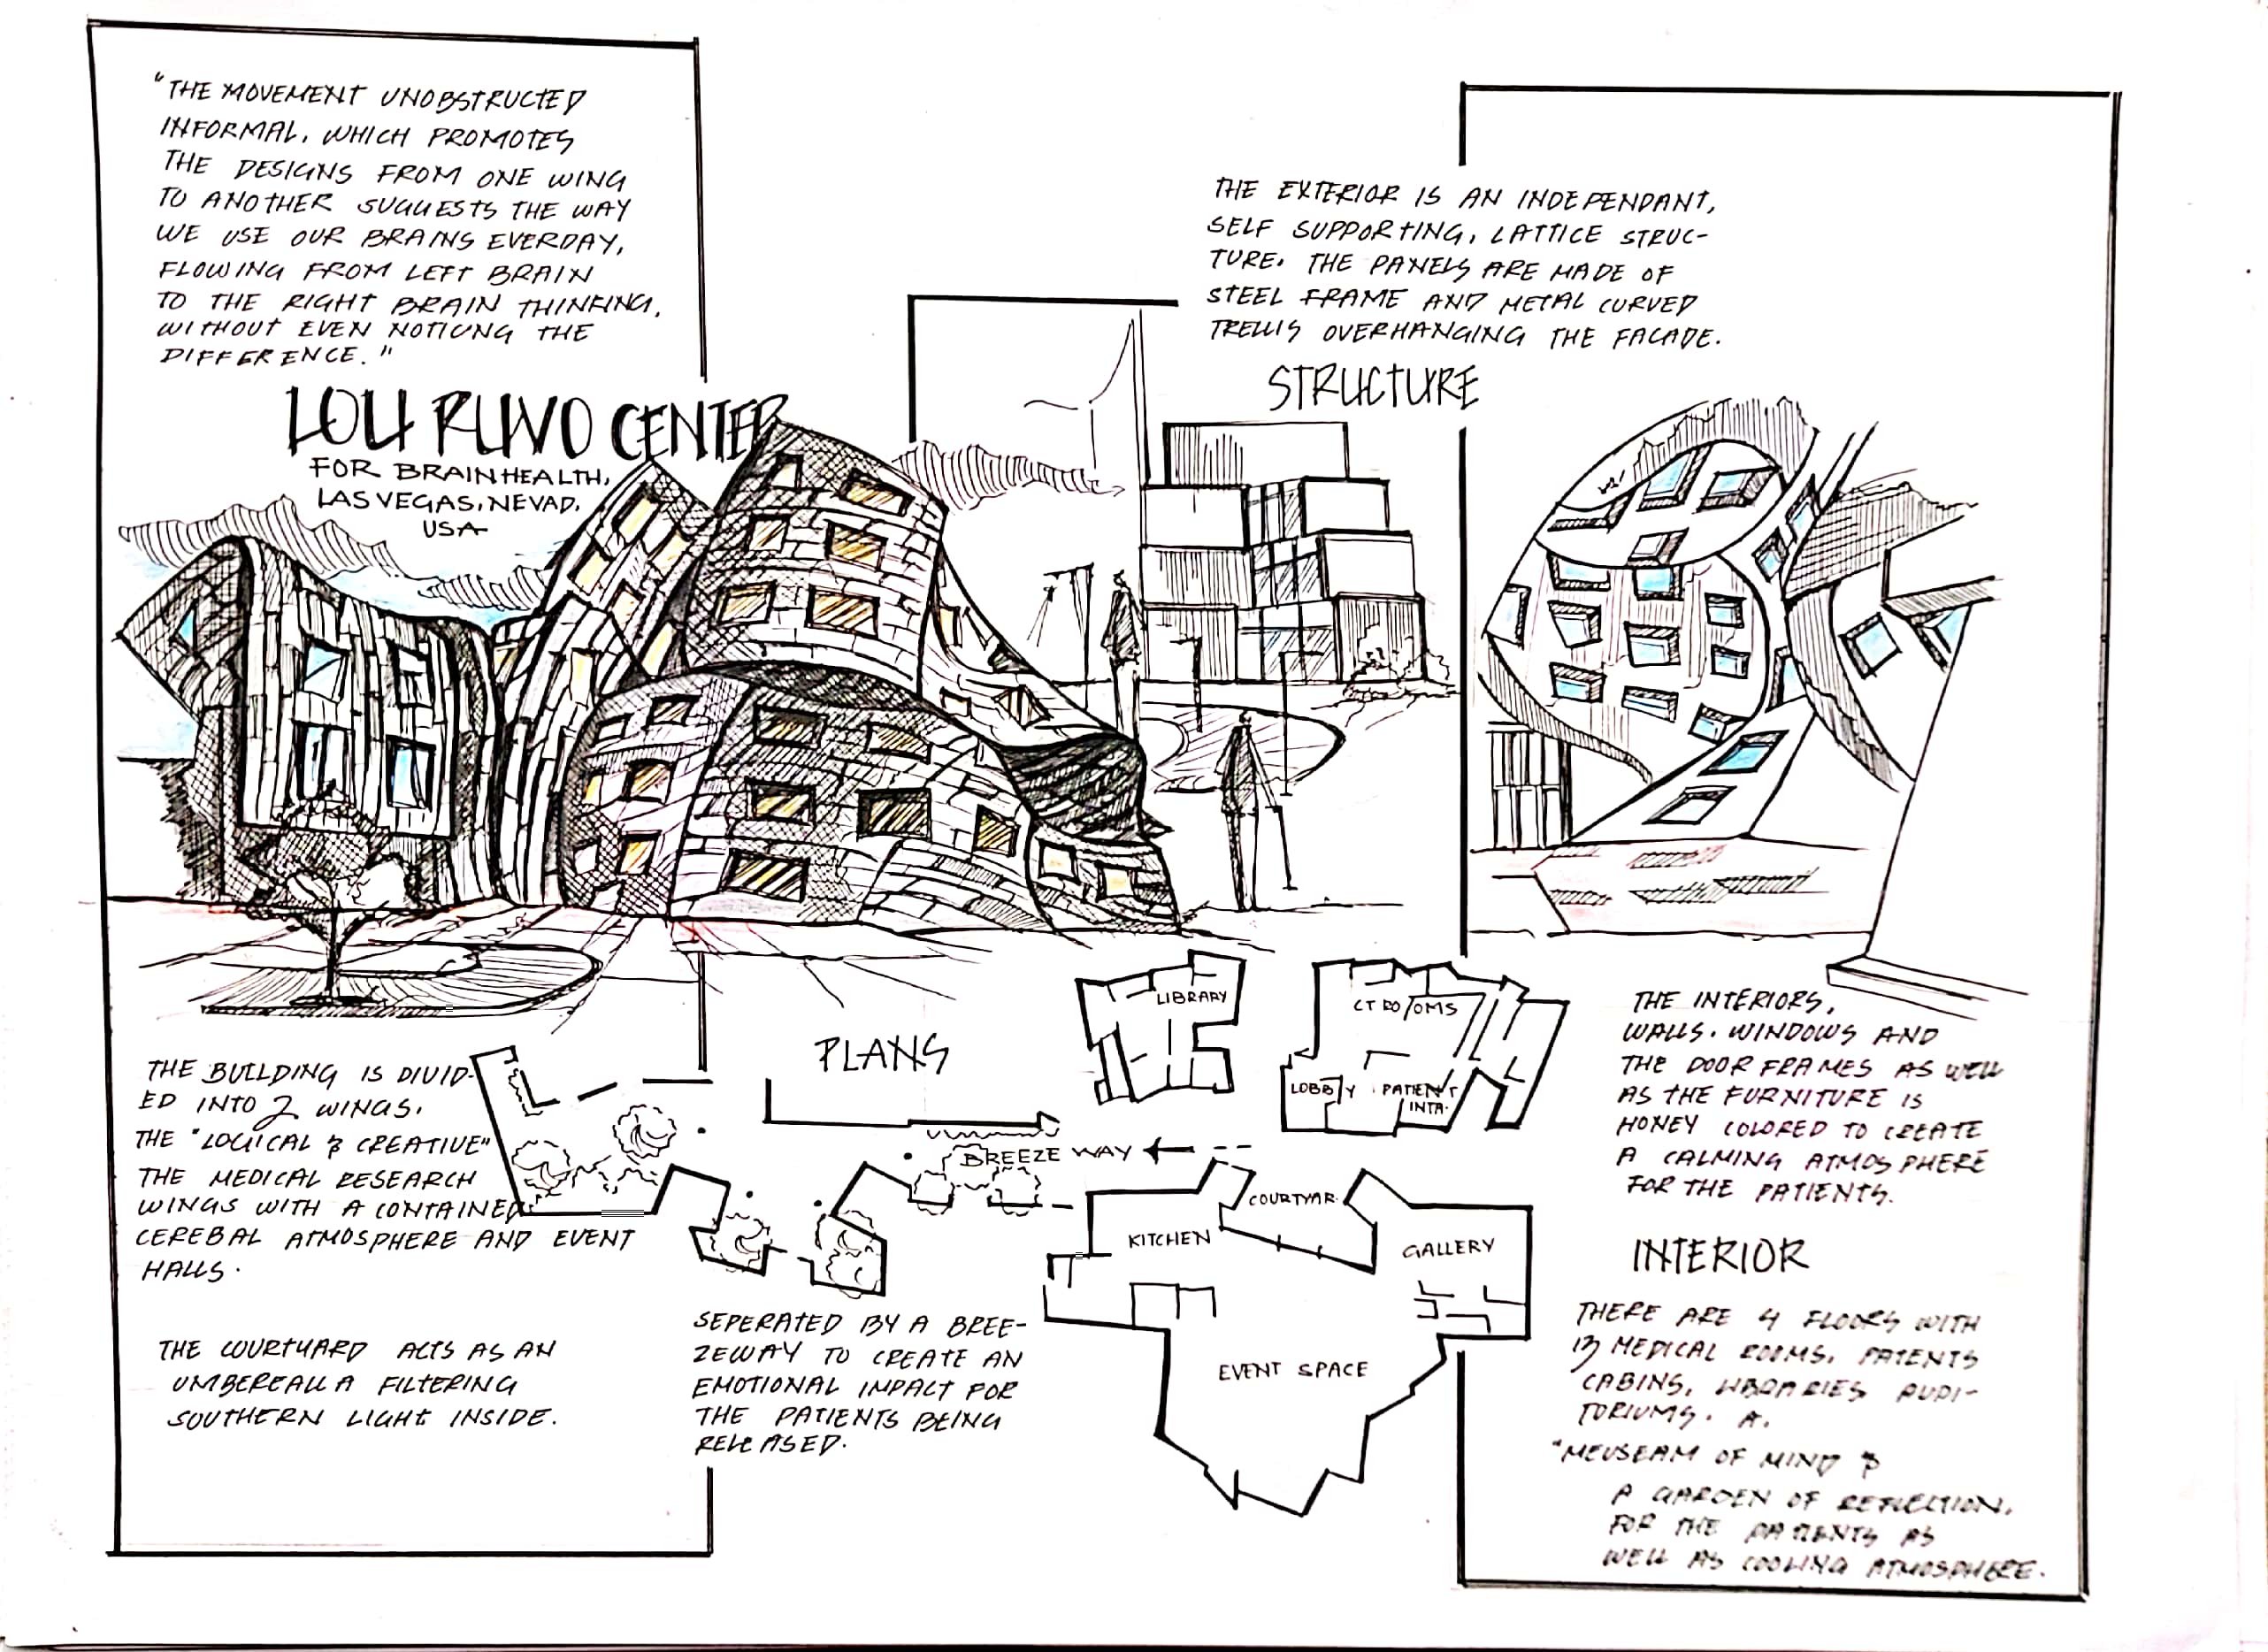 "THE MOVEMENT UNOBSTRUCTED
INFORMAL, WHICH PROMOTES
THE DESIGNS FROM ONE WING
TO ANOTHER SUGGESTS THE WAY
WE USE OUR BRAINS EVERDAY,
FLOWING FROM LEFT BRAIN
TO THE RIGHT BRAIN THINKING,
WITHOUT EVEN NOTICNG THE
DIFFERENCE."
LOU RUVO CENTER
FOR BRAIN HEALTH,
LAS VEGAS, NEVAD,
USA
THE EXTERIOR IS AN INDEPENDANT,
SELF SUPPORTING, LATTICE STRUC-
TURE. THE PANELS ARE MADE OF
STEEL FRAME AND METAL CURVED
TRELLIS OVERHANGING THE FACADE.
STRUCTURE
THE BUILDING IS DIVID-
ED INTO 2 WINGS.
THE "LOGICAL & CREATIVE"
THE MEDICAL RESEARCH
WINGS WITH A CONTAINED
CEREBAL ATMOSPHERE AND EVENT
HALLS.
THE COURTYARD ACTS AS AN
UMBEREALLA FILTERING
SOUTHERN LIGHT INSIDE.
PLANS
LIBRARY
CT ROOMS
LOBBY
PATIENT
INTA.
BREEZE WAY
COURTYAR.
KITCHEN
GALLERY
EVENT SPACE
SEPERATED BY A BREE-
ZEWAY TO CREATE AN
EMOTIONAL IMPACT FOR
THE PATIENTS BEING
RELEASED.
THE INTERIORS,
WALLS. WINDOWS AND
THE DOOR FRAMES AS WELL
AS THE FURNITURE IS
HONEY COLORED TO CREATE
A CALMING ATMOSPHERE
FOR THE PATIENTS.
INTERIOR
THERE ARE 4 FLOORS WITH
13 MEDICAL ROOMS, PATENTS
CABINS, LIBRARIES AUDI-
TORIUMS. A.
"MEUSEAM OF MIND &
A GARDEN OF REFLECTION,
FOR THE PATIENTS AS
WELL AS COOLING ATMOSPHERE.